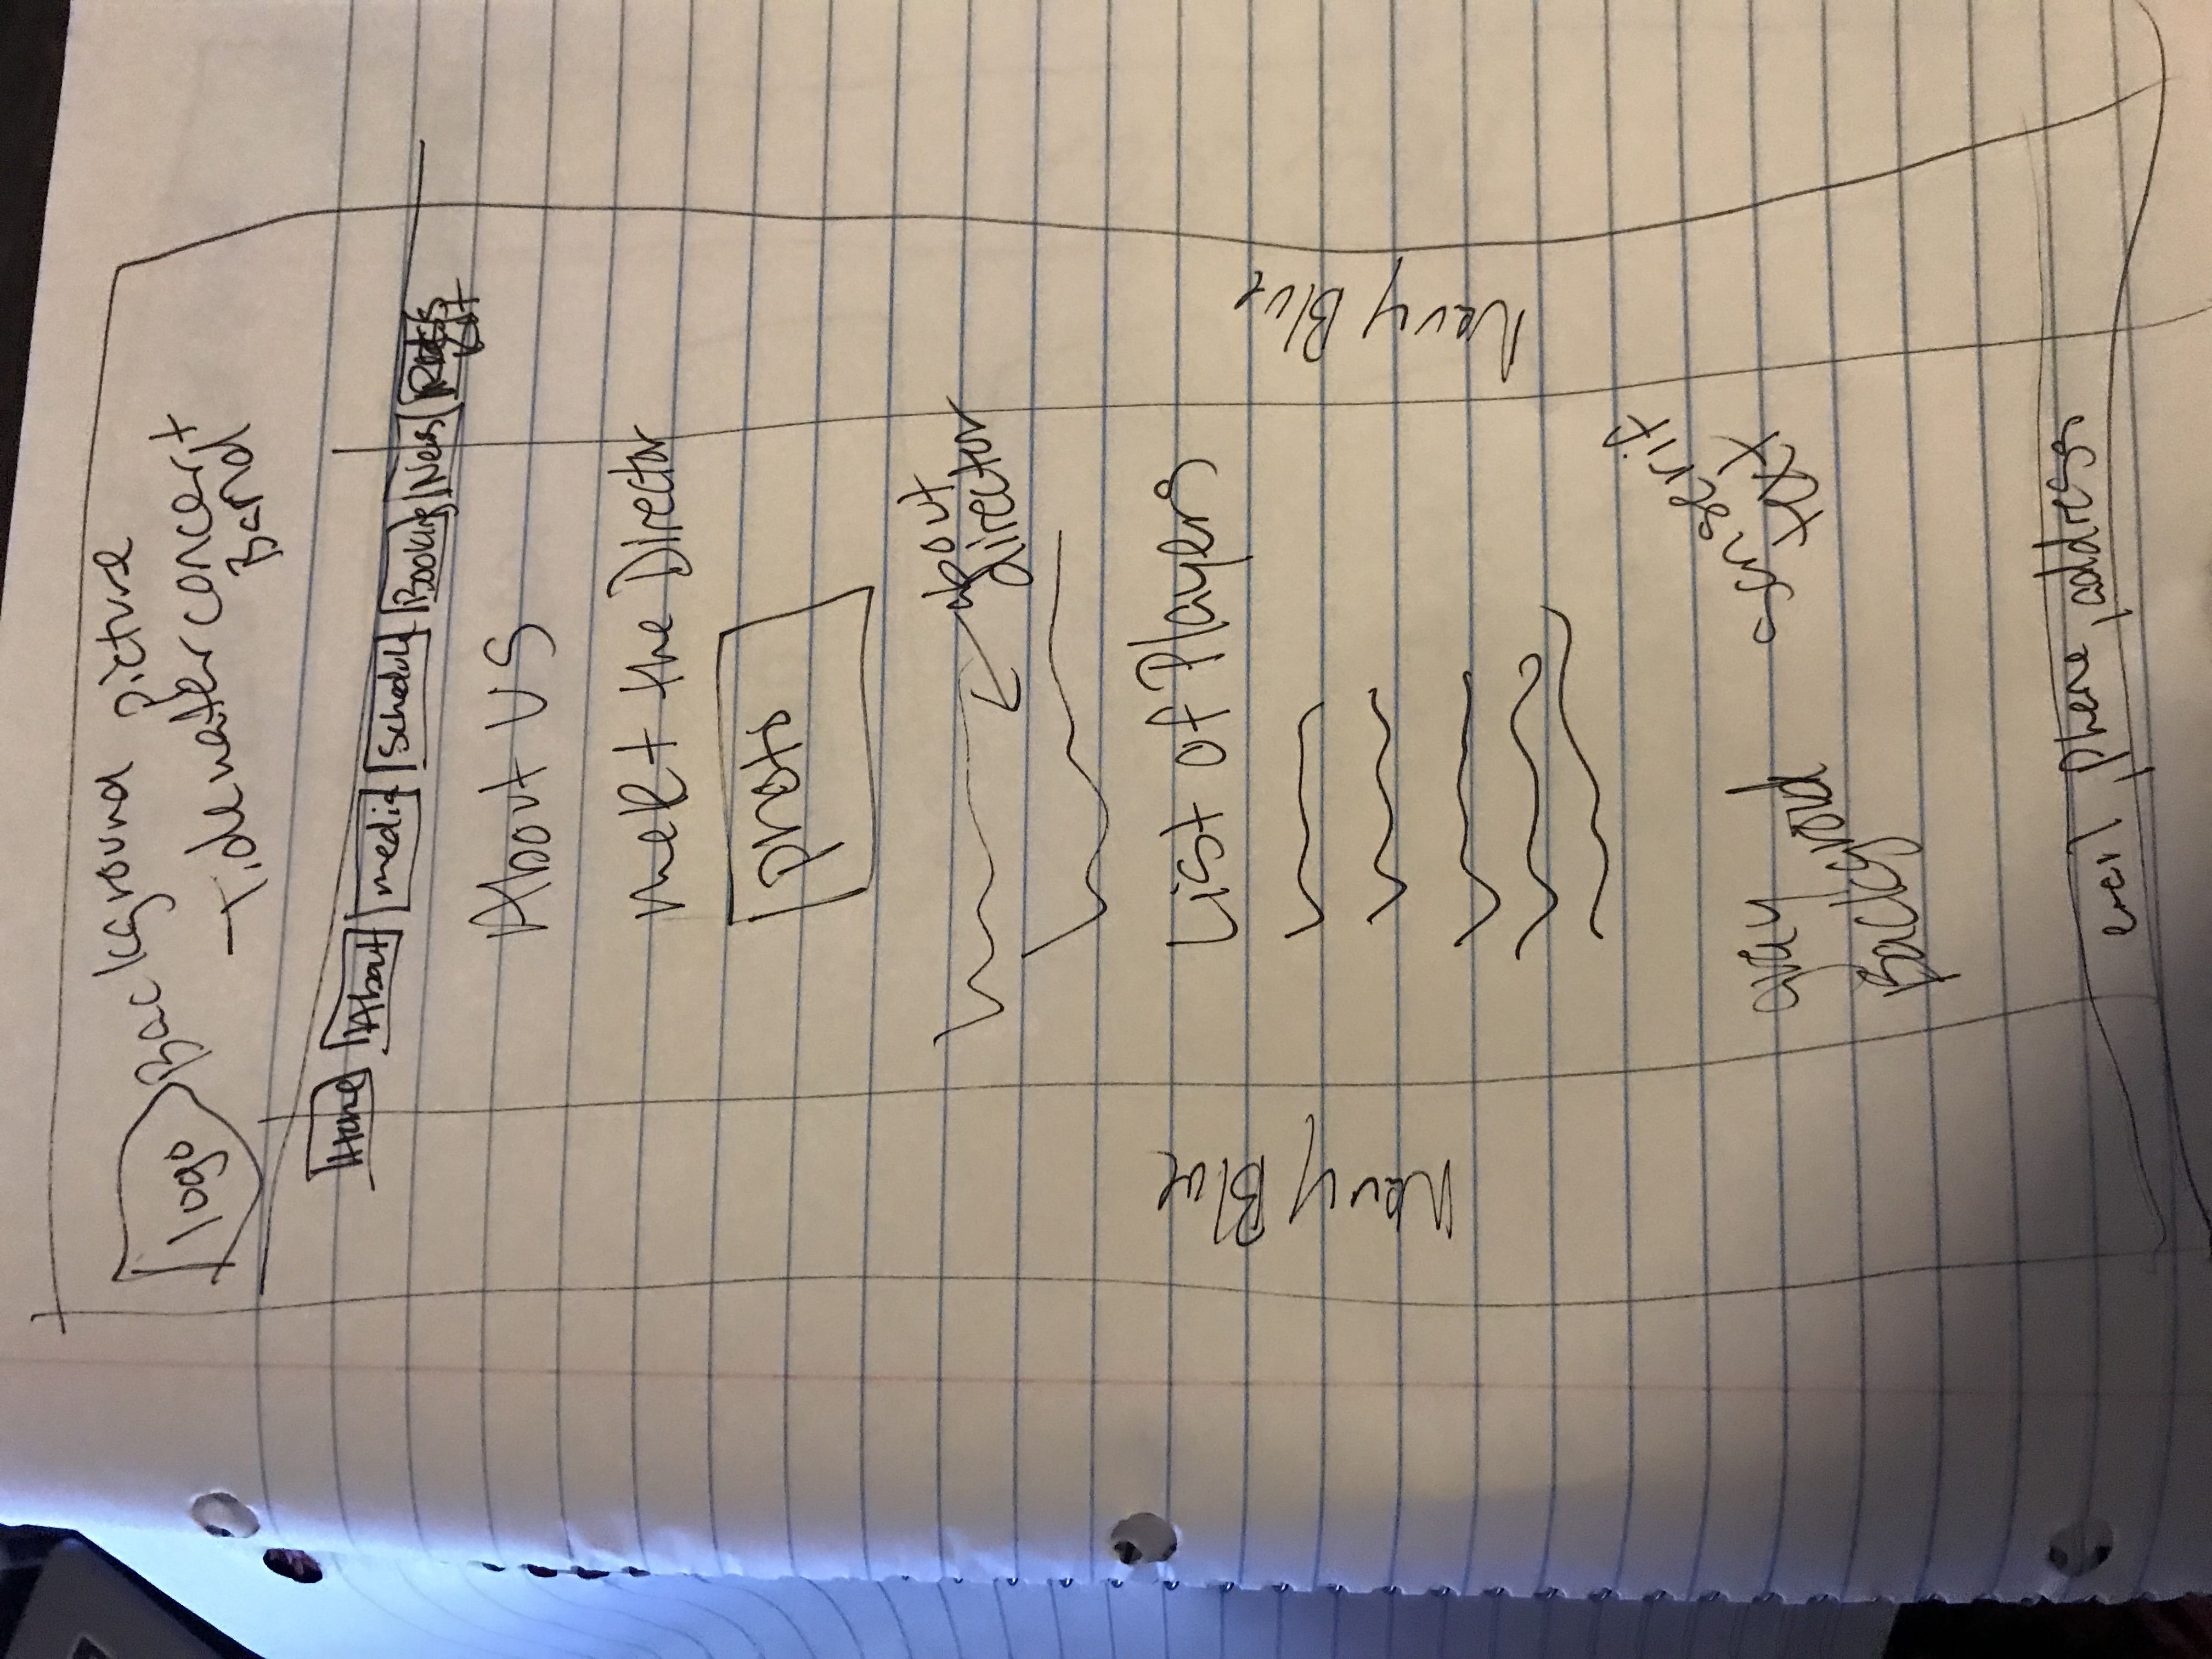 logo
Background picture
Tidewater concert
Band
Home
About
media
Schedule
Booking
News
Press
Kit
About US
meet the Director
photo
about
director
List of Players
Navy Blue
Navy Blue
gray
Background
san serif
text
email, phone, address